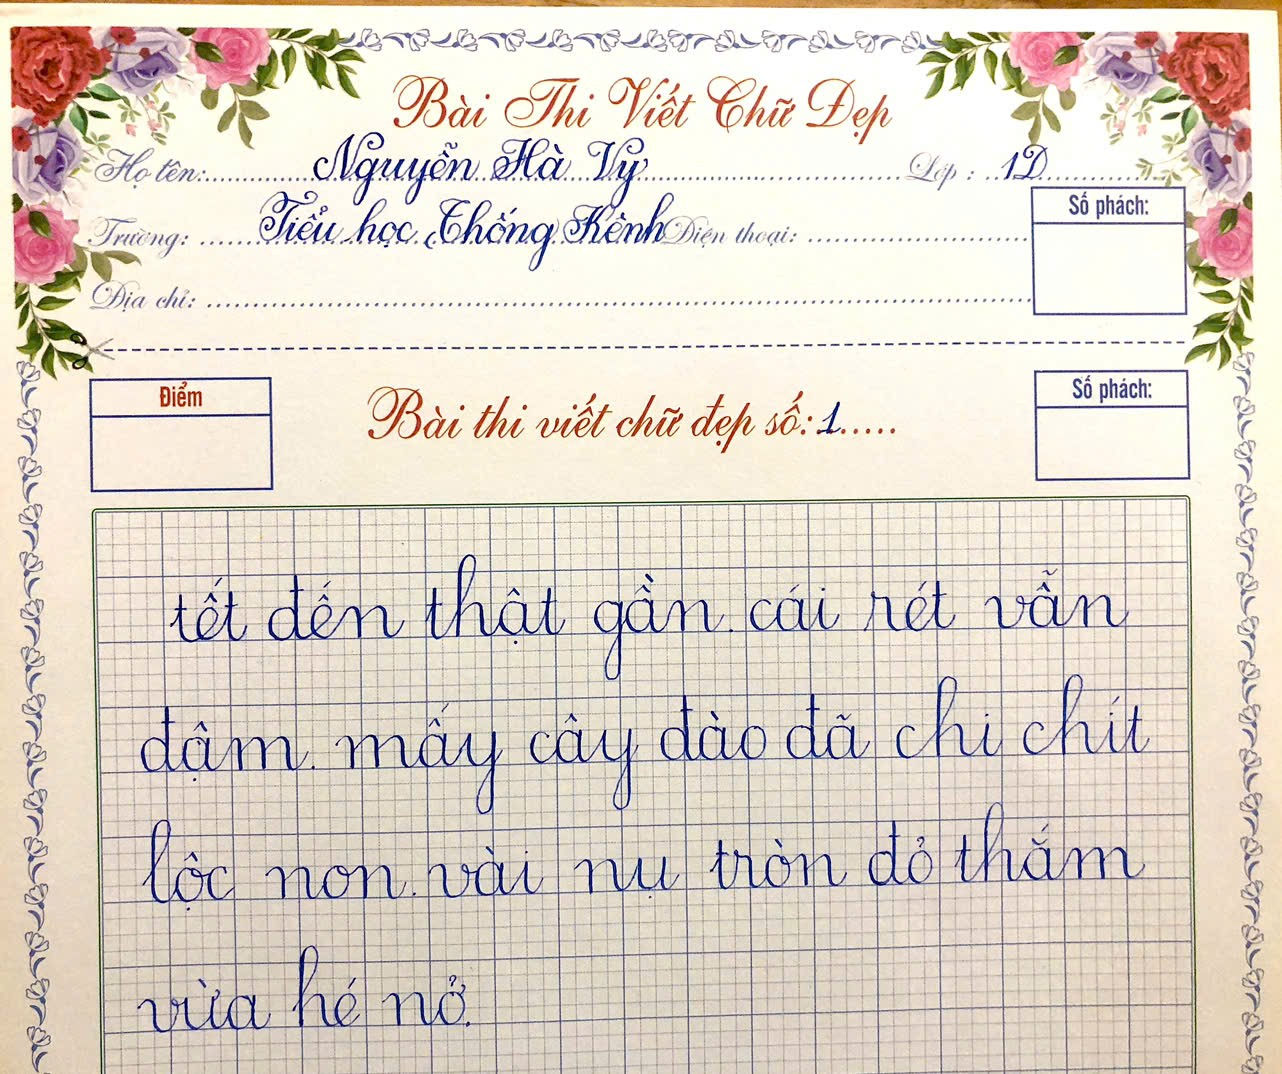 Bài Thi Viết Chữ Đẹp
Họ tên:............Nguyễn Hà Vy..............................Lớp : ..1D................
Trường: ......Tiểu học Thống Kênh Điện thoại: ..............................
Số phách:
Địa chỉ: ................................................................................
Điểm
Bài thi viết chữ đẹp số:1.....
Số phách:
tết đến thật gần. cái rét vẫn
đậm. mấy cây đào đã chi chít
lộc non. vài nụ tròn đỏ thắm
vừa hé nở.